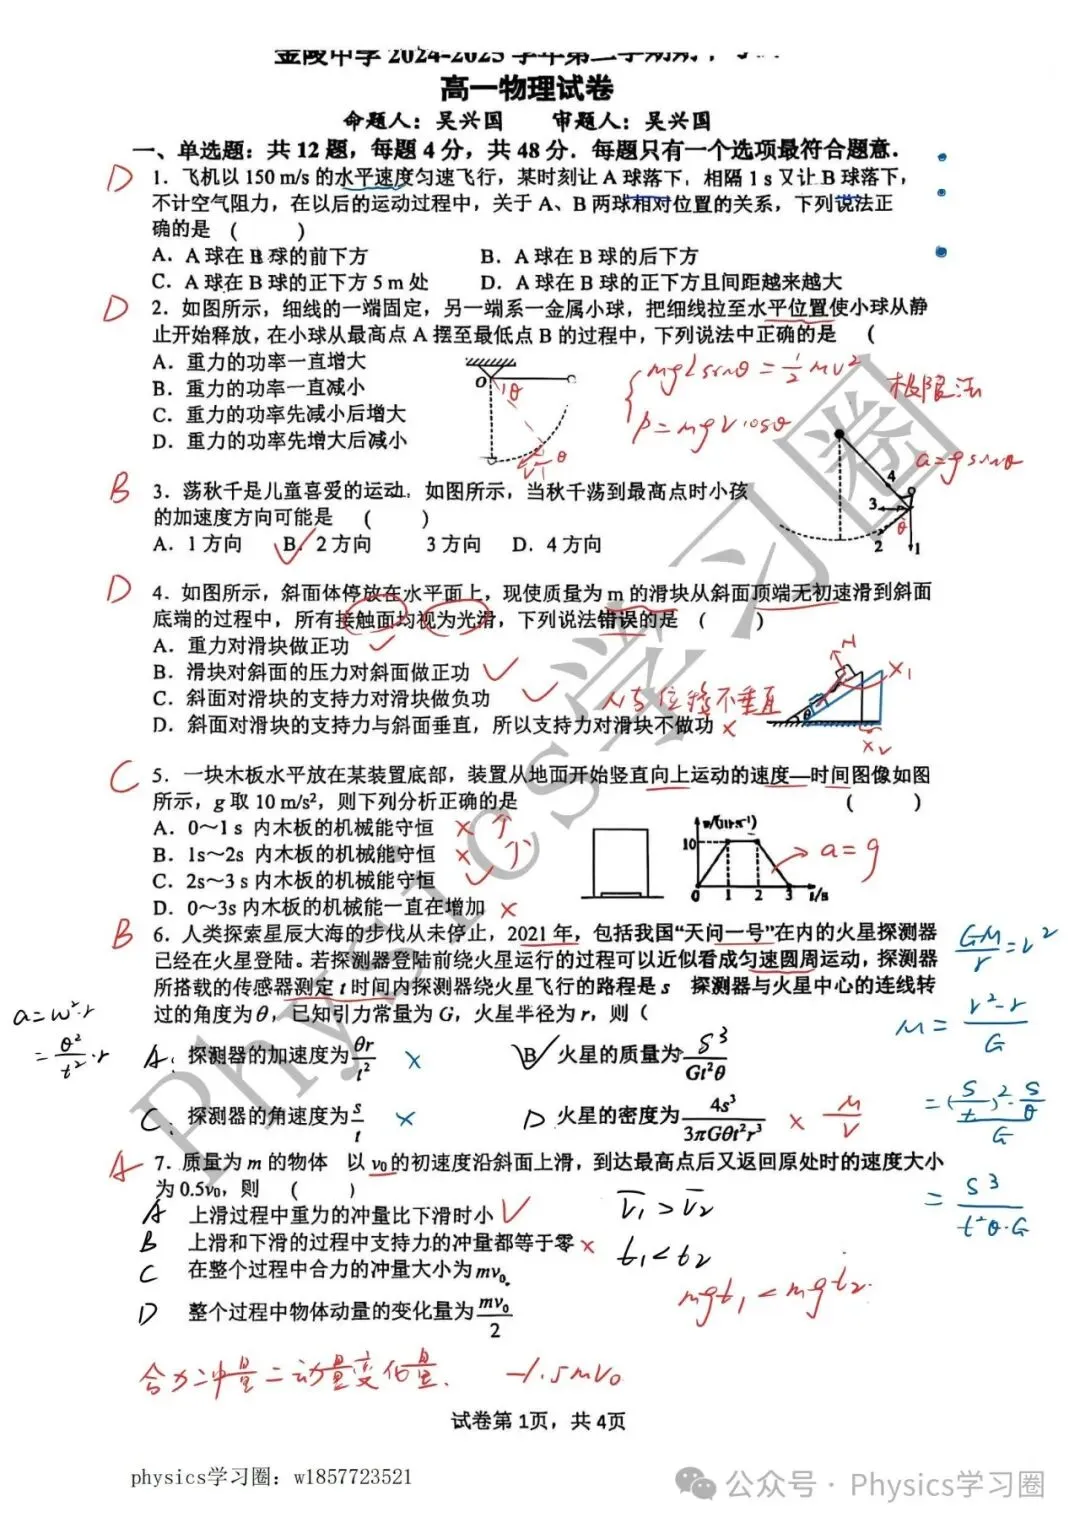 金陵中学 2024-2025 学年第二学期期
高一物理试卷
命题人：吴兴国 审题人：吴兴国
一、单选题：共 12 题，每题 4 分，共 48 分．每题只有一个选项最符合题意．
D 1．飞机以 150 m/s 的水平速度匀速飞行，某时刻让 A 球落下，相隔 1 s 又让 B 球落下，
不计空气阻力，在以后的运动过程中，关于 A、B 两球相对位置的关系，下列说法正
确的是（ ）
A．A 球在 B 球的前下方 B．A 球在 B 球的后下方
C．A 球在 B 球的正下方 5 m 处 D．A 球在 B 球的正下方且间距越来越大
D 2．如图所示，细线的一端固定，另一端系一金属小球，把细线拉至水平位置使小球从静
止开始释放，在小球从最高点 A 摆至最低点 B 的过程中，下列说法中正确的是 （
A．重力的功率一直增大
B．重力的功率一直减小
C．重力的功率先减小后增大
D．重力的功率先增大后减小
O θ
v θ
mgLsinθ = 1/2 mv²
P = mgv cosθ
极限法
B 3．荡秋千是儿童喜爱的运动．如图所示，当秋千荡到最高点时小孩
的加速度方向可能是 （ ）
A．1 方向 B．2 方向 3 方向 D．4 方向
a=gsinθ
4
3
θ
2 1
D 4．如图所示，斜面体停放在水平面上，现使质量为 m 的滑块从斜面顶端无初速滑到斜面
底端的过程中，所有接触面均视为光滑，下列说法错误的是 （ ）
A．重力对滑块做正功
B．滑块对斜面的压力对斜面做正功
C．斜面对滑块的支持力对滑块做负功
D．斜面对滑块的支持力与斜面垂直，所以支持力对滑块不做功 ×
N与位移不垂直
N
x₁
θ
x₂
C 5．一块木板水平放在某装置底部，装置从地面开始竖直向上运动的速度—时间图像如图
所示，g 取 10 m/s²，则下列分析正确的是 （ ）
A．0～1 s 内木板的机械能守恒 × 个
B．1s～2s 内木板的机械能守恒 × 个
C．2s～3 s 内木板的机械能守恒
D．0～3s 内木板的机械能一直在增加 ×
v/(m·s⁻¹)
10
0 1 2 3 t/s
a = g
B 6．人类探索星辰大海的步伐从未停止，2021 年，包括我国“天问一号”在内的火星探测器
已经在火星登陆。若探测器登陆前绕火星运行的过程可以近似看成匀速圆周运动，探测器
所搭载的传感器测定 t 时间内探测器绕火星飞行的路程是 s 探测器与火星中心的连线转
过的角度为 θ，已知引力常量为 G，火星半径为 r，则（
A. 探测器的加速度为 θr/t² × B 火星的质量为 s³/Gt²θ
C. 探测器的角速度为 s/t × D 火星的密度为 4s³/3πGθt²r³ × M/V
a=ω²·r
= θ²/t² · r
GM/r = v²
M = v²·r/G
= (s/t)²·s/θ / G
= s³/t²θ·G
A 7．质量为 m 的物体 以 v₀ 的初速度沿斜面上滑，到达最高点后又返回原处时的速度大小
为 0.5v₀，则 （ ）
A 上滑过程中重力的冲量比下滑时小
B 上滑和下滑的过程中支持力的冲量都等于零 ×
C 在整个过程中合力的冲量大小为 mv₀
D 整个过程中物体动量的变化量为 mv₀/2
v̅₁ > v̅₂
t₁ < t₂
mgt₁ < mgt₂.
合力冲量=动量变化量. -1.5mv₀
试卷第 1页，共 4页
physics学习圈：w1857723521
公众号 · Physics学习圈
Physics学习圈